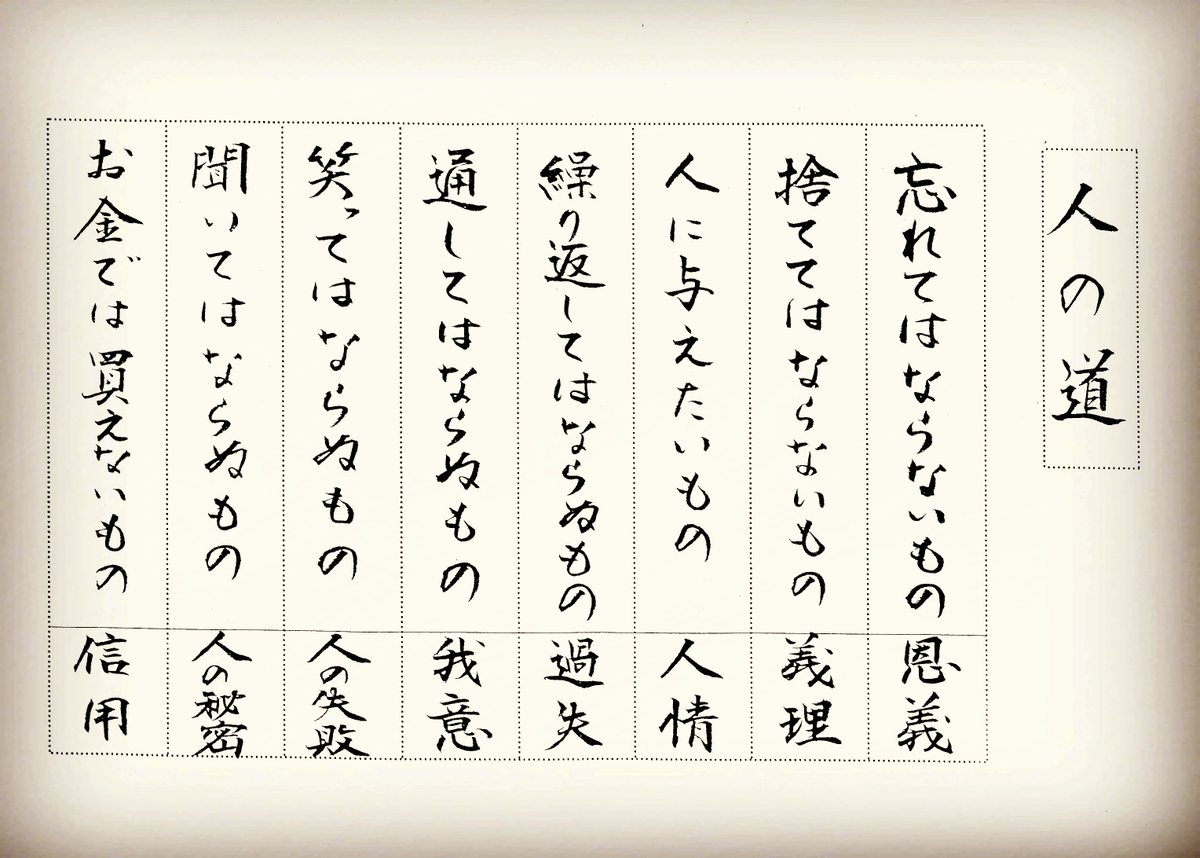 人の道
忘れてはならないもの 恩義
捨ててはならないもの 義理
人に与えたいもの 人情
繰り返してはならぬもの 過失
通してはならぬもの 我意
笑ってはならぬもの 人の失敗
聞いてはならぬもの 人の秘密
お金では買えないもの 信用